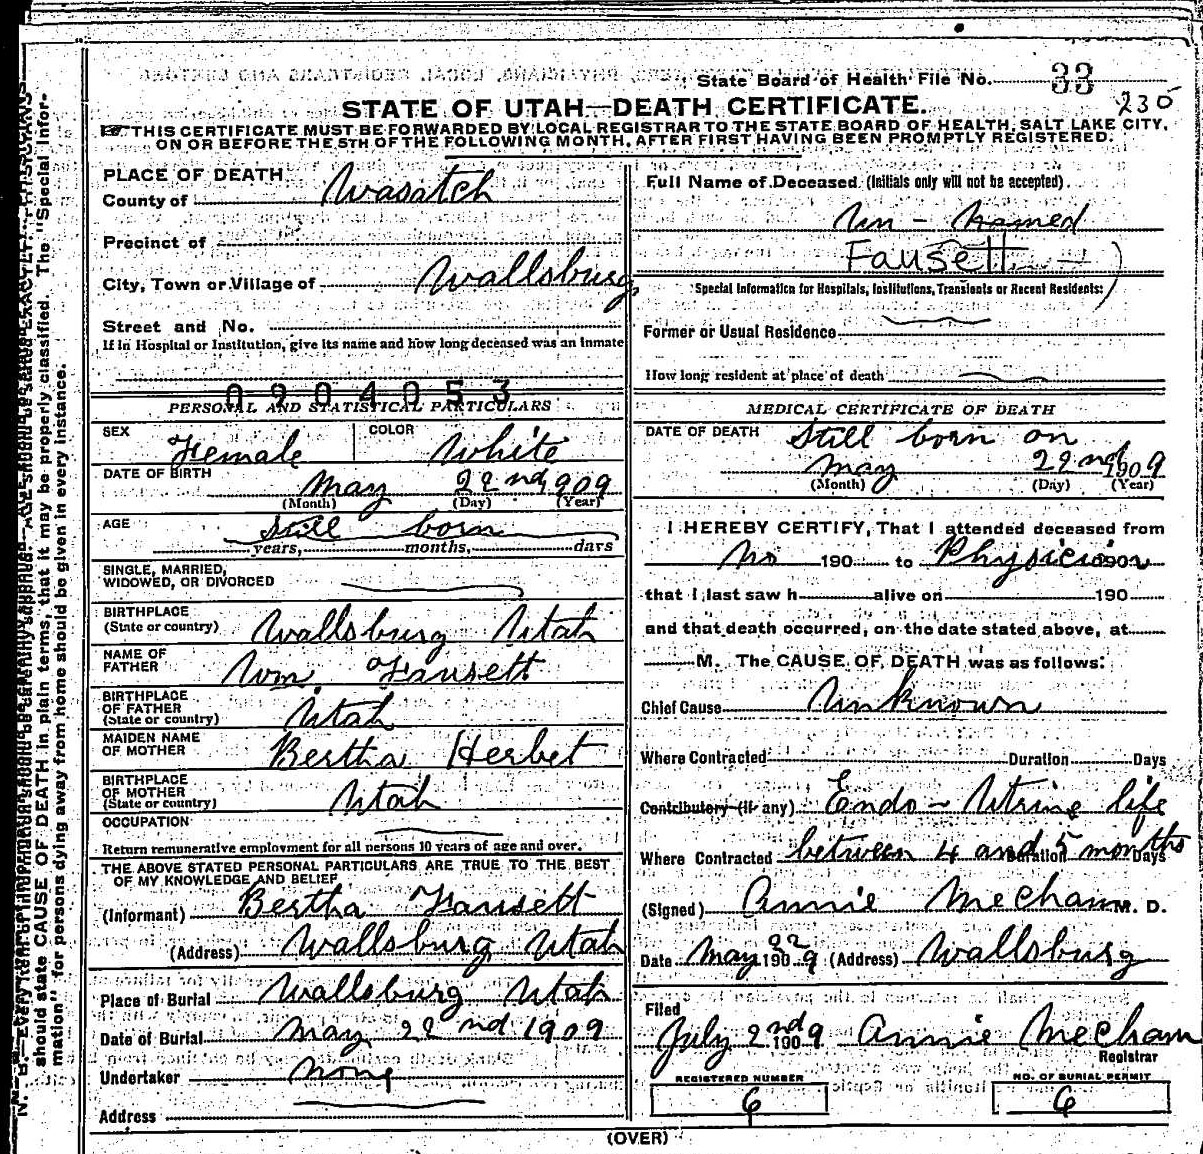 State Board of Health File No. 33
235
STATE OF UTAH—DEATH CERTIFICATE.
THIS CERTIFICATE MUST BE FORWARDED BY LOCAL REGISTRAR TO THE STATE BOARD OF HEALTH, SALT LAKE CITY,
ON OR BEFORE THE 5TH OF THE FOLLOWING MONTH, AFTER FIRST HAVING BEEN PROMPTLY REGISTERED.
PLACE OF DEATH
County of Wasatch
Precinct of
City, Town or Village of Wallsburg
Street and No.
If in Hospital or Institution, give its name and how long deceased was an inmate
0904053
PERSONAL AND STATISTICAL PARTICULARS
SEX Female COLOR White
DATE OF BIRTH May 22nd 1909
(Month) (Day) (Year)
AGE Still born
years, months, days
SINGLE, MARRIED,
WIDOWED, OR DIVORCED
BIRTHPLACE
(State or country) Wallsburg Utah
NAME OF
FATHER Wm. Fausett
BIRTHPLACE
OF FATHER
(State or country) Utah
MAIDEN NAME
OF MOTHER Bertha Herbet
BIRTHPLACE
OF MOTHER
(State or country) Utah
OCCUPATION
Return remunerative employment for all persons 10 years of age and over.
THE ABOVE STATED PERSONAL PARTICULARS ARE TRUE TO THE BEST
OF MY KNOWLEDGE AND BELIEF
(Informant) Bertha Fausett
(Address) Wallsburg Utah
Place of Burial Wallsburg Utah
Date of Burial May 22nd 1909
Undertaker None
Address
Full Name of Deceased (Initials only will not be accepted).
Un-named
Fausett
Special Information for Hospitals, Institutions, Transients or Recent Residents:
Former or Usual Residence
How long resident at place of death
MEDICAL CERTIFICATE OF DEATH
DATE OF DEATH Still born on
May 22nd 1909
(Month) (Day) (Year)
I HEREBY CERTIFY, That I attended deceased from
No 190 to Physician 190
that I last saw h alive on 190
and that death occurred, on the date stated above, at
M. The CAUSE OF DEATH was as follows:
Chief Cause Unknown
Where Contracted Duration Days
Contributory (if any) Endo-Utrine life
Where Contracted between 4 and 5 months Duration Days
(Signed) Annie Mecham M. D.
Date May 22 1909 (Address) Wallsburg
Filed
July 2nd 1909 Annie Mecham
Registrar
REGISTERED NUMBER NO. OF BURIAL PERMIT
6 6
(OVER)
should state CAUSE OF DEATH in plain terms, that it may be properly classified. The "Special Infor-
mation" for persons dying away from home should be given in every instance.